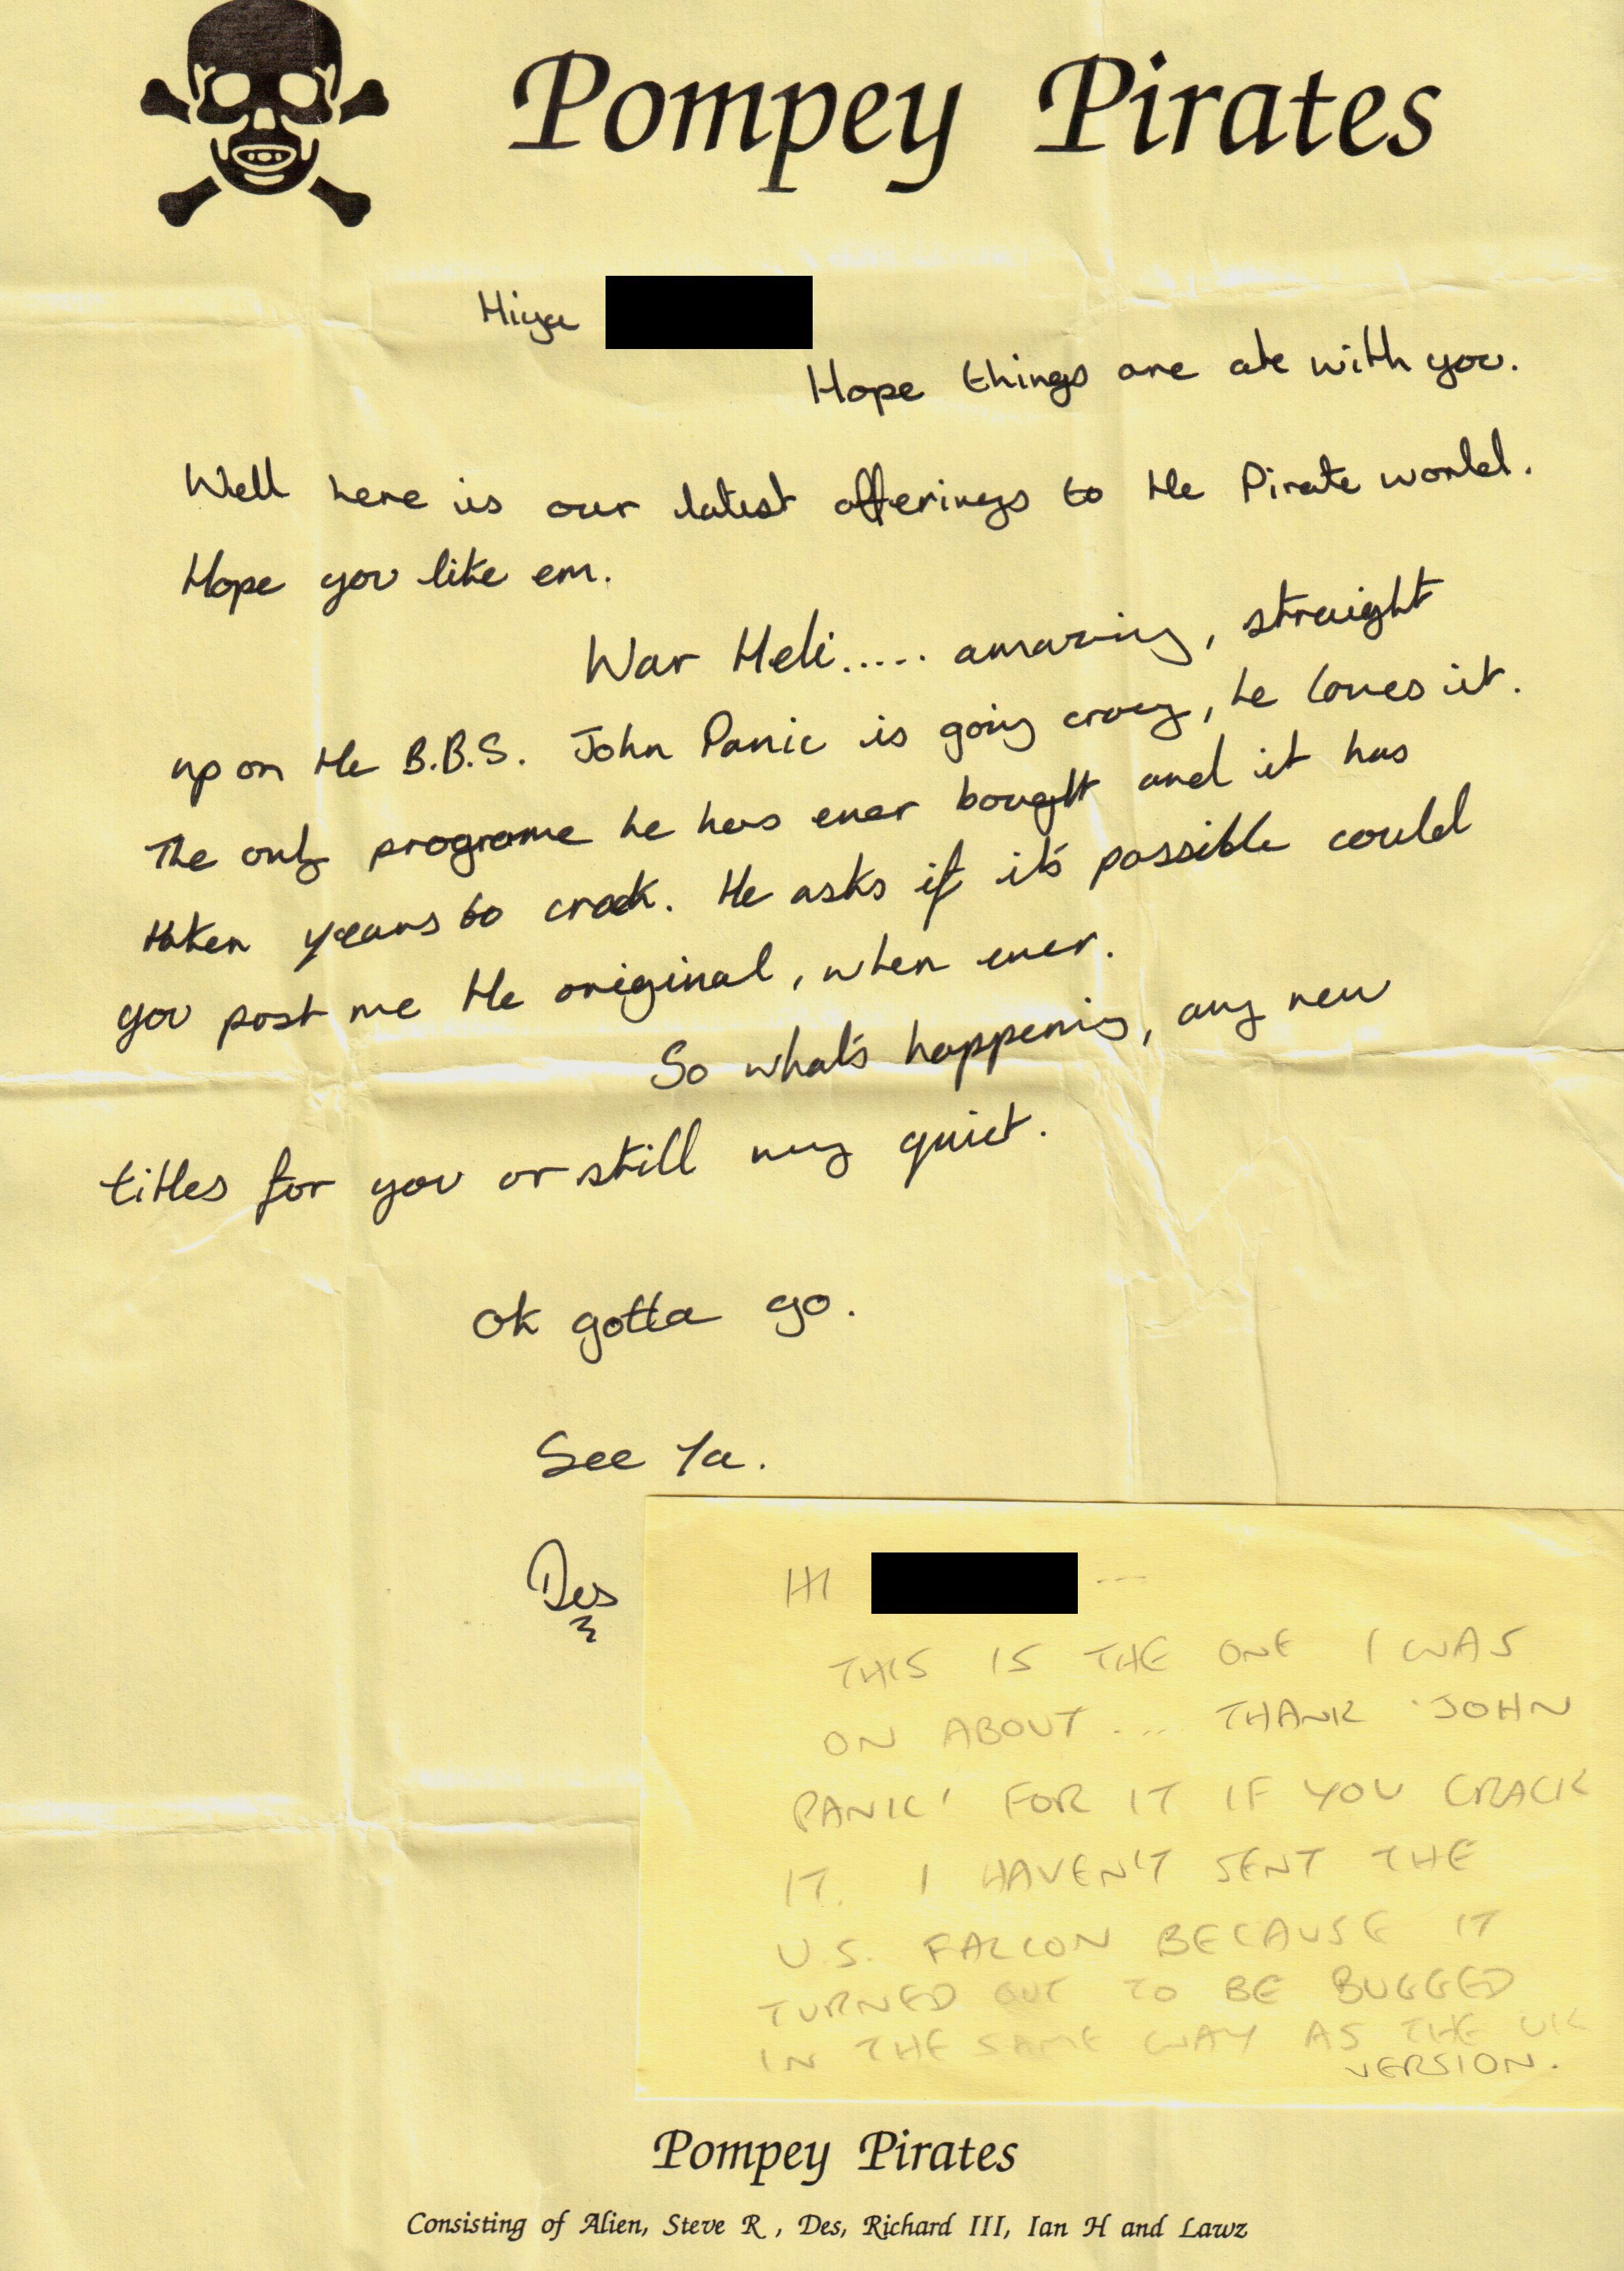 Pompey Pirates
Hiya
Hope things are ok with you.
Well here is our latest offerings to the Pirate world.
Hope you like em.
War Heli..... amazing, straight
up on the B.B.S. John Panic is going crazy, he loves it.
The only programe he has ever bought and it has
taken years to crack. He asks if it's possible could
you post me the original, when ever.
So what's happening, any new
titles for you or still very quiet.
Ok gotta go.
See Ya.
Des
HI ---
THIS IS THE ONE I WAS
ON ABOUT ... THANK 'JOHN
PANIC' FOR IT IF YOU CRACK
IT. I HAVEN'T SENT THE
U.S. FALCON BECAUSE IT
TURNED OUT TO BE BUGGED
IN THE SAME WAY AS THE UK
VERSION.
Pompey Pirates
Consisting of Alien, Steve R , Des, Richard III, Ian H and Lawz